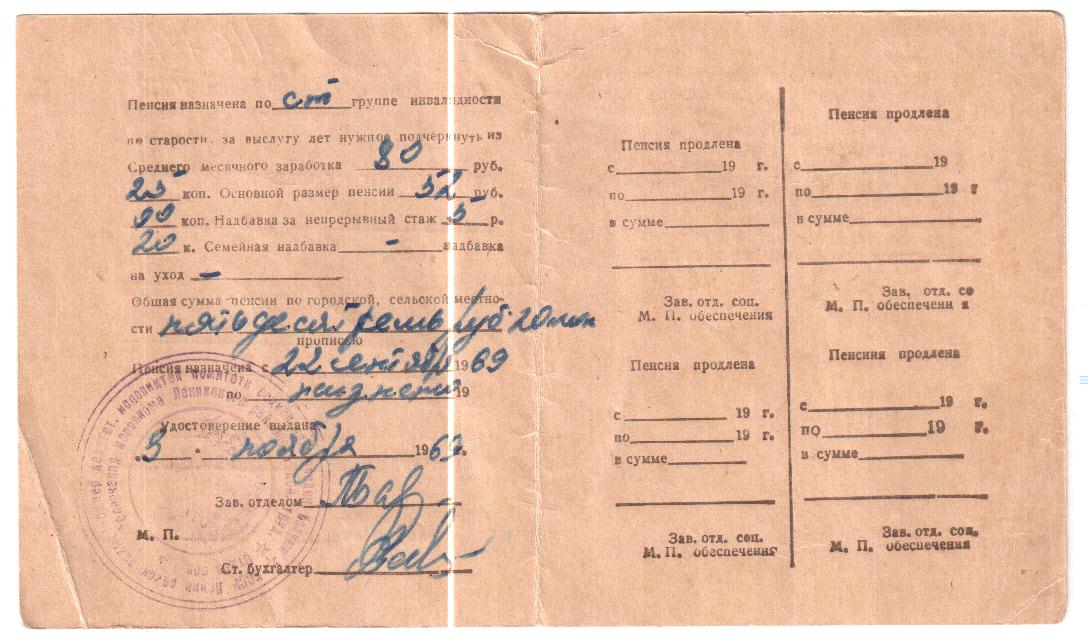 Пенсия назначена по ст группе инвалидности
по старости, за выслугу лет нужное подчеркнуть из
Среднего месячного заработка 80 руб.
25 коп. Основной размер пенсии 52 руб.
00 коп. Надбавка за непрерывный стаж 5 р.
20 к. Семейная надбавка - надбавка
на уход —
Общая сумма пенсии по городской, сельской местно-
сти пятьдесят семь руб 20
прописью
Пенсия назначена с 22 сентября 1969
по 19
Удостоверение выдана
3 ноября 196
Зав. отделом
М. П.
Ст. бухгалтер
Пенсия продлена
с 19 г.
по 19 г.
в сумме
Зав. отд. соц.
М. П. обеспечения
Пенсия продлена
с 19
по 19 г
в сумме
Зав. отд. со
М. П. обеспечени я
Пенсия продлена
с 19 г.
по 19 г.
в сумме
Зав. отд. соц.
М. П. обеспечения
Пенсиия продлена
с 19 г.
по 19 г.
в сумме
Зав. отд. соц.
М. П. обеспечения